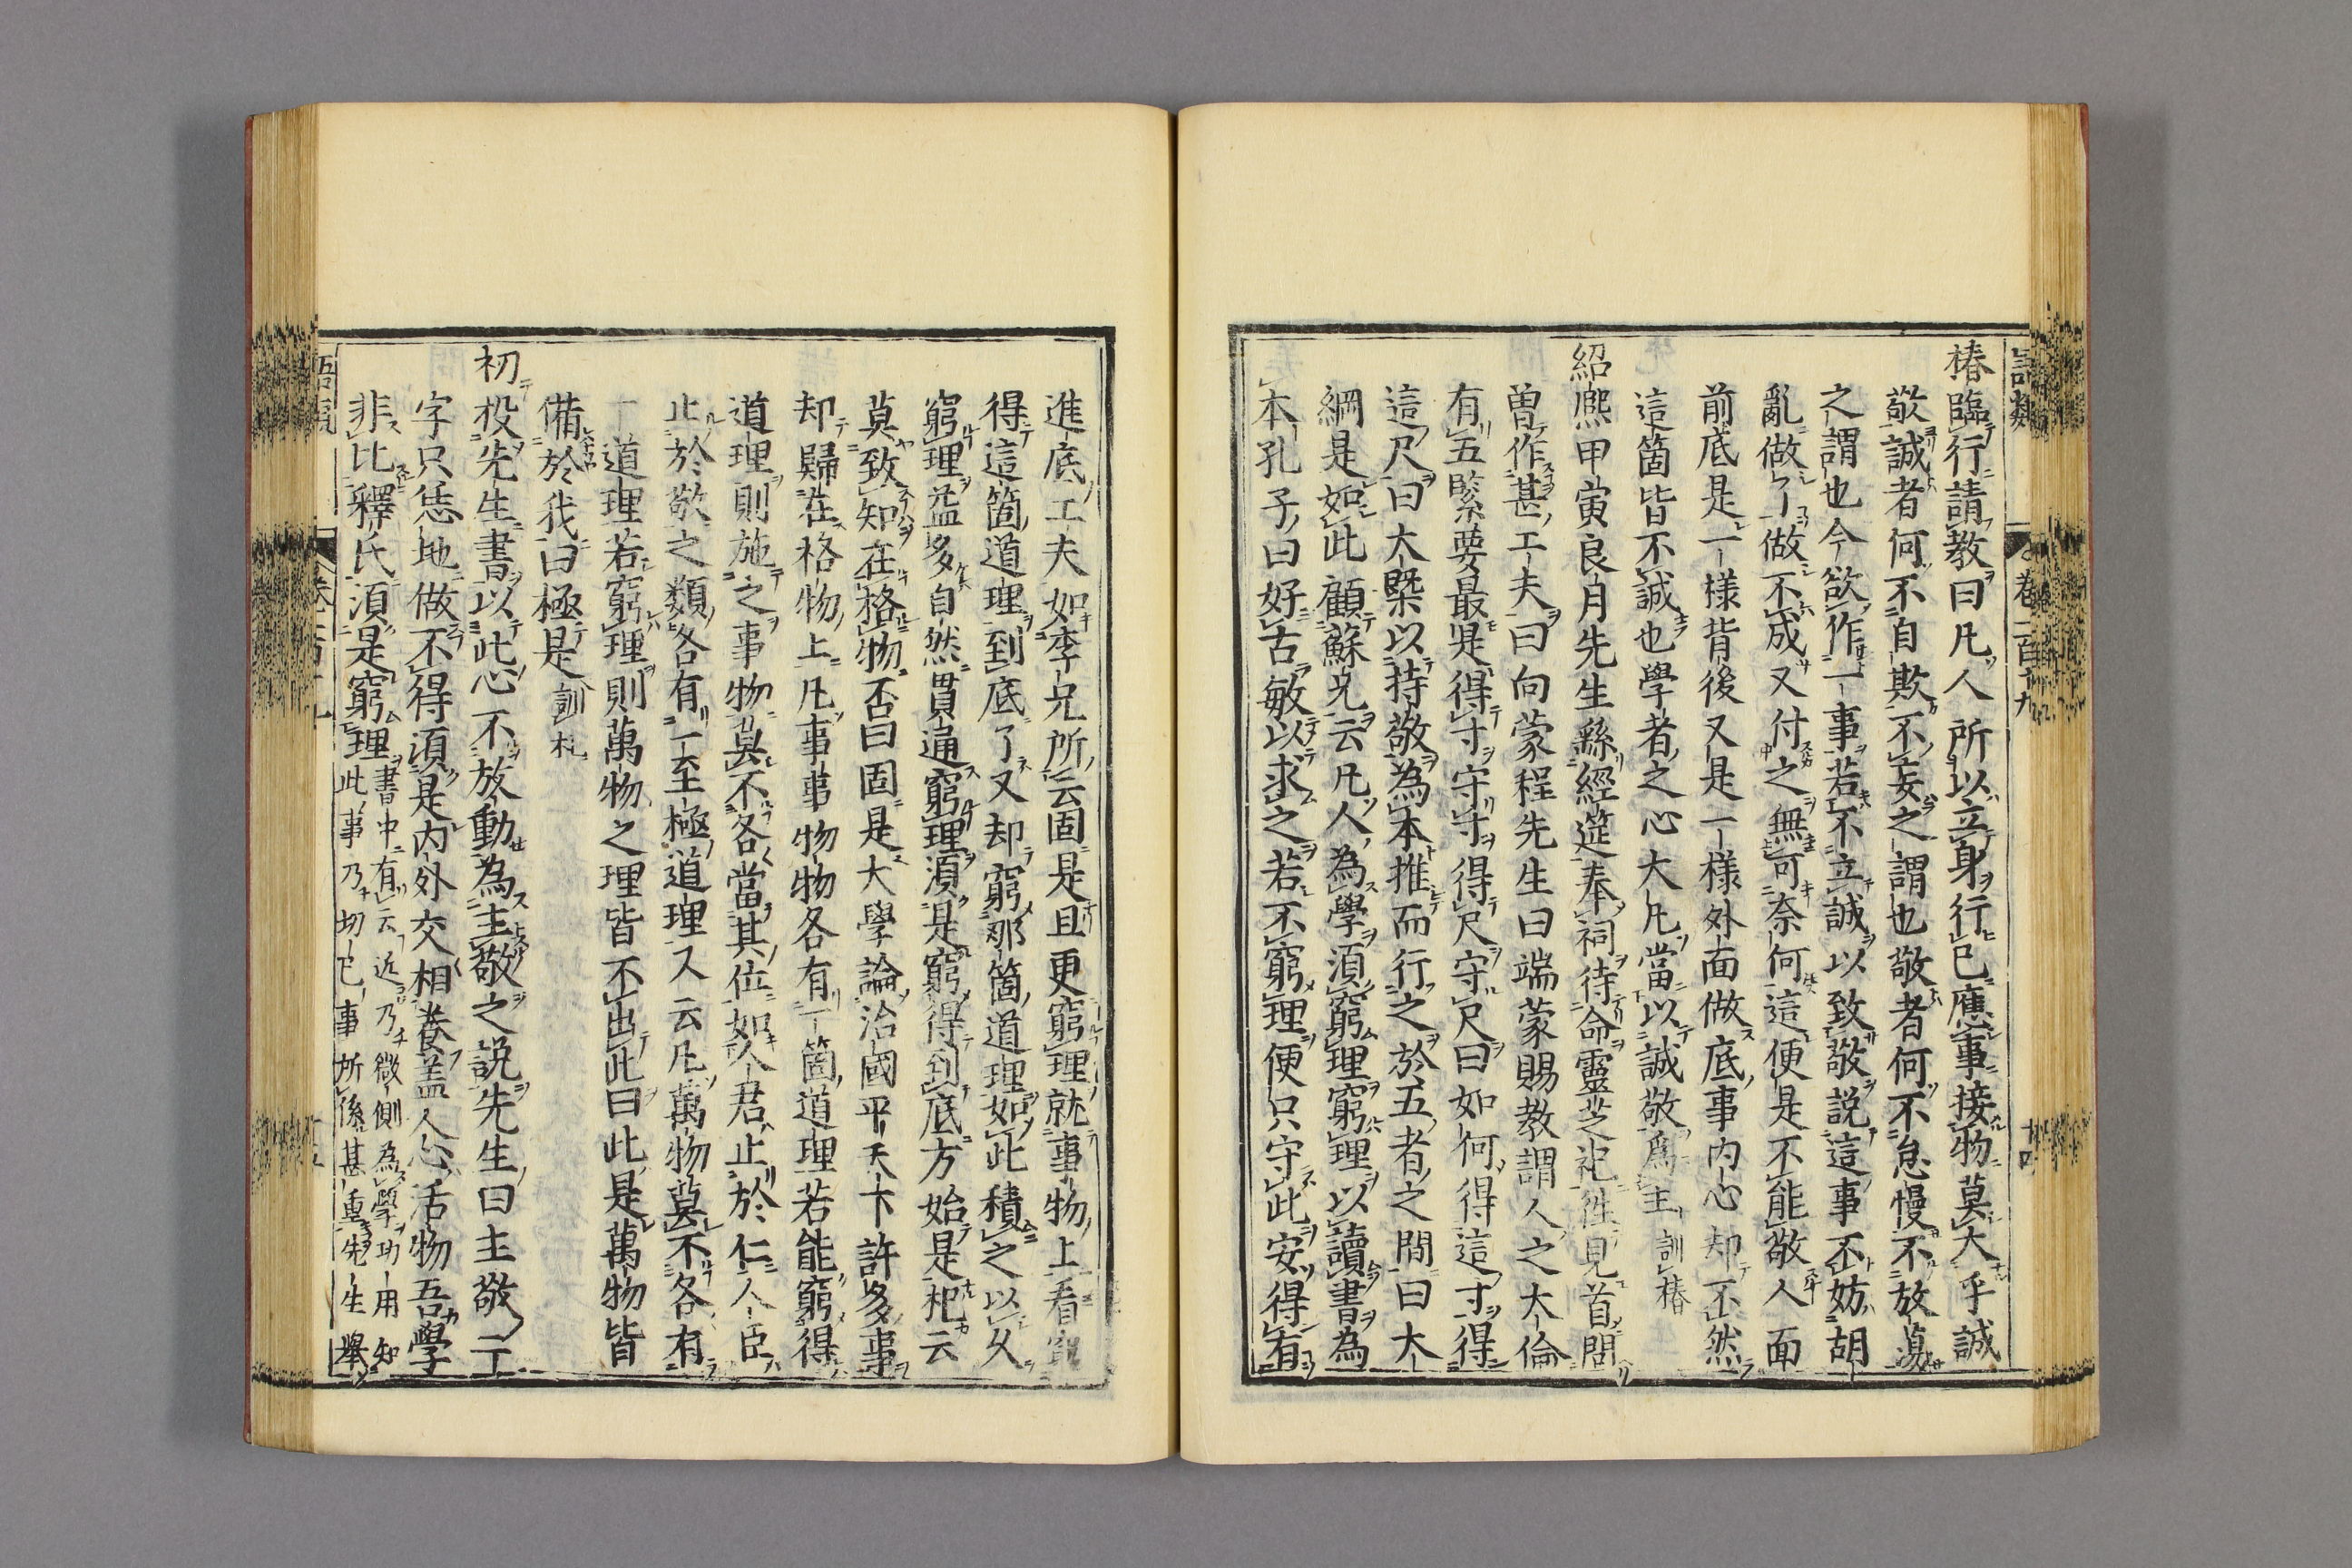 語類
卷一百十九
十四
椿臨行請教曰凡人所以立身行己應事接物莫大乎誠
敬誠者何不自欺不妄之謂也敬者何不怠慢不放蕩
之謂也今欲作一事若不立誠以致敬說這事不妨胡
亂做了做不成又付之無可奈何這便是不能敬人面
前底是一樣背後又是一樣外面做底事內心却不然
這箇皆不誠也學者之心大凡當以誠敬爲主訓椿
紹熈甲寅良月先生繇經筵奉祠待命靈芝祀徃見首問
曽作甚工夫曰向蒙程先生曰端蒙賜教謂人之大倫
有五緊要最是得寸守寸得尺守尺曰如何得這寸得
這尺曰大槩以持敬為本推而行之於五者之間曰大
綱是如此顧蘇兄云凡人為學須窮理窮理以讀書為
本孔子曰好古敏以求之若不窮理便只守此安得有
進底工夫如李兄所云固是且更窮理就事物上看窮
得這箇道理到底了又却窮那箇道理如此積之以久
窮理益多自然貫通窮理須是窮得到底方始是杞云
莫致知在格物否曰固是大學論治國平天下許多事
却歸在格物上凡事事物物各有一箇道理若能窮得
道理則施之事物莫不各當其位如人君止於仁人臣
止於敬之類各有一至極道理又云凡萬物莫不各有
一道理若窮理則萬物之理皆不出此曰此是萬物皆
備於我曰極是訓杞
初投先生書以此心不放動為主敬之說先生曰主敬二
字只恁地做不得須是內外交相養蓋人心活物吾學
非比釋氏須是窮理書中有云近乃微側為學功用知
此事乃切己事所係甚重先生舉